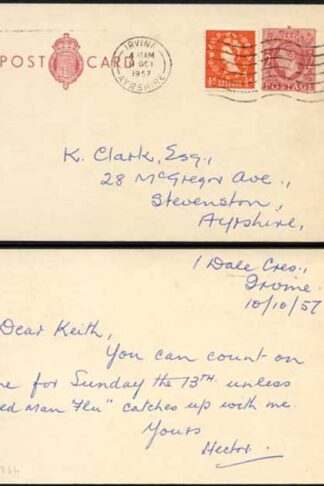 POST CARD
IRVINE
AYRSHIRE
OCT
1957
POSTAGE
K. Clark, Esq.,
28 McGregor Ave.,
Stevenston,
Ayrshire,
1 Dale Cres.,
Irvine.
10/10/57
Dear Keith,
You can count on
me for Sunday the 13TH unless
ed Man Flu" catches up with me.
Yours
Hector.